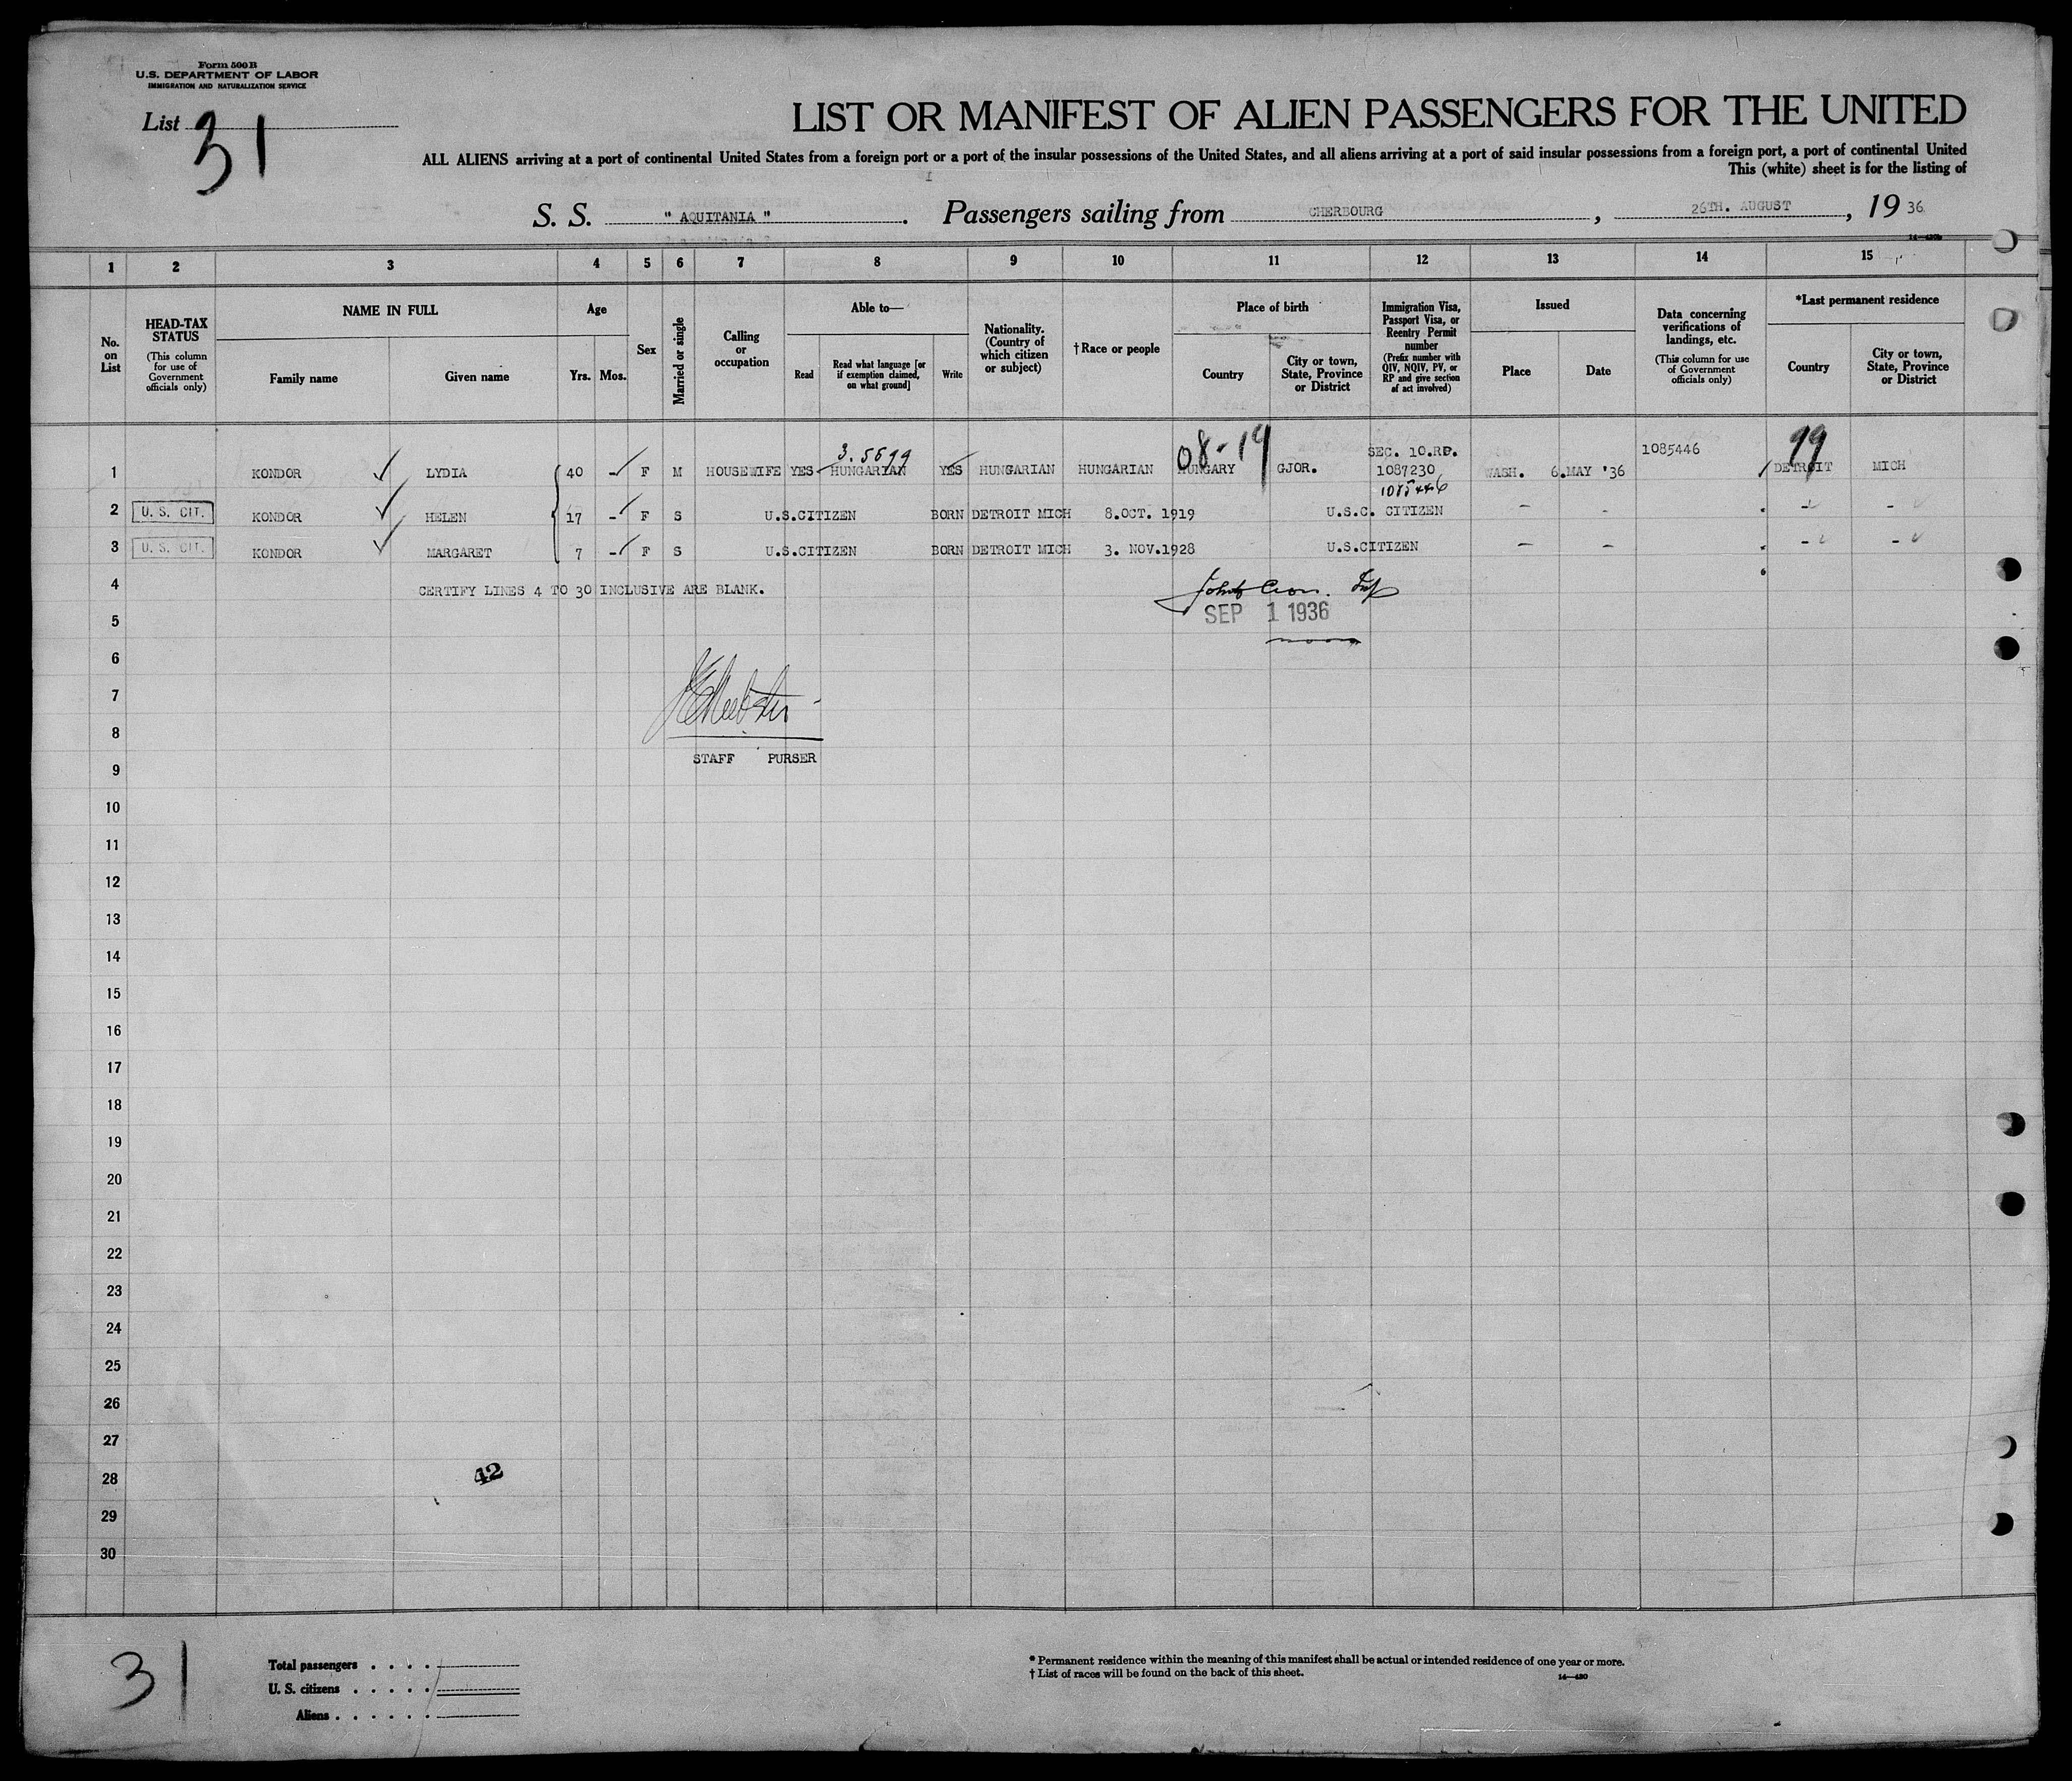 Form 500 B
U.S. DEPARTMENT OF LABOR
IMMIGRATION AND NATURALIZATION SERVICE
List 31
LIST OR MANIFEST OF ALIEN PASSENGERS FOR THE UNITED
ALL ALIENS arriving at a port of continental United States from a foreign port or a port of the insular possessions of the United States, and all aliens arriving at a port of said insular possessions from a foreign port, a port of continental United
This (white) sheet is for the listing of
S. S. " AQUITANIA " . Passengers sailing from CHERBOURG , 26TH. AUGUST , 19 36
1 2 3 4 5 6 7 8 9 10 11 12 13 14 15
No. on List
HEAD-TAX STATUS
(This column for use of Government officials only)
NAME IN FULL
Family name
Given name
Age
Yrs.
Mos.
Sex
Married or single
Calling or occupation
Able to—
Read
Read what language [or if exemption claimed, on what ground]
Write
Nationality. (Country of which citizen or subject)
†Race or people
Place of birth
Country
City or town, State, Province or District
Immigration Visa, Passport Visa, or Reentry Permit number
(Prefix number with QIV, NQIV, PV, or RP and give section of act involved)
Issued
Place
Date
Data concerning verifications of landings, etc.
(This column for use of Government officials only)
*Last permanent residence
Country
City or town, State, Province or District
3.5699 08-14 SEC. 10.RP. 1085446 99
1 KONDOR LYDIA 40 - F M HOUSEWIFE YES HUNGARIAN YES HUNGARIAN HUNGARIAN HUNGARY GJOR. 1087230 WASH. 6.MAY '36 DETROIT MICH
1085446
2 U. S. CIT. KONDOR HELEN 17 - F S U.S.CITIZEN BORN DETROIT MICH 8.OCT. 1919 U.S.C. CITIZEN - - - -
3 U. S. CIT. KONDOR MARGARET 7 - F S U.S.CITIZEN BORN DETROIT MICH 3. NOV.1928 U.S.CITIZEN - - - -
4 CERTIFY LINES 4 TO 30 INCLUSIVE ARE BLANK.
5 SEP 1 1936
6
7
8
STAFF PURSER
9
10
11
12
13
14
15
16
17
18
19
20
21
22
23
24
25
26
27
28 42
29
30
31
Total passengers . . . .
U. S. citizens . . . . .
Aliens . . . . . .
* Permanent residence within the meaning of this manifest shall be actual or intended residence of one year or more.
† List of races will be found on the back of this sheet.
14—430